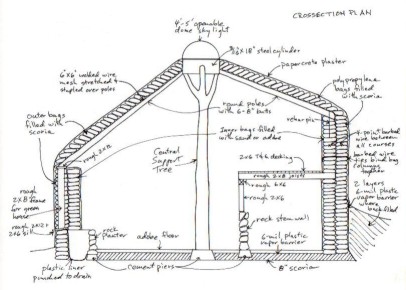 CROSSECTION PLAN
4'-5' openable
dome sky light
3/16"X 18" steel cylinder
papercrete plaster
6"X6" welded wire
mesh stretched &
stapled over poles
polypropylene
bags filled
with scoria
round poles
with 6-8" butts
outer bags
filled with
scoria
rebar pin
rough 2X8
Inner bags filled
with sand or adobe
4-point barbed
wire between
all courses
Central
Support
Tree
2X6 T&G decking
barbed wire
ties bind bag
columns
together
rough 2X8 joist
rough 6X6
rough
2X8 frame
for green
house
rough 2X6
2 layers
6-mil plastic
vapor barrier
where
backfilled
rough 2X12 &
2X6 sill
rock
planter
rock stem wall
adobe floor
6-mil plastic
vapor barrier
plastic liner
punched to drain
cement piers
8" scoria